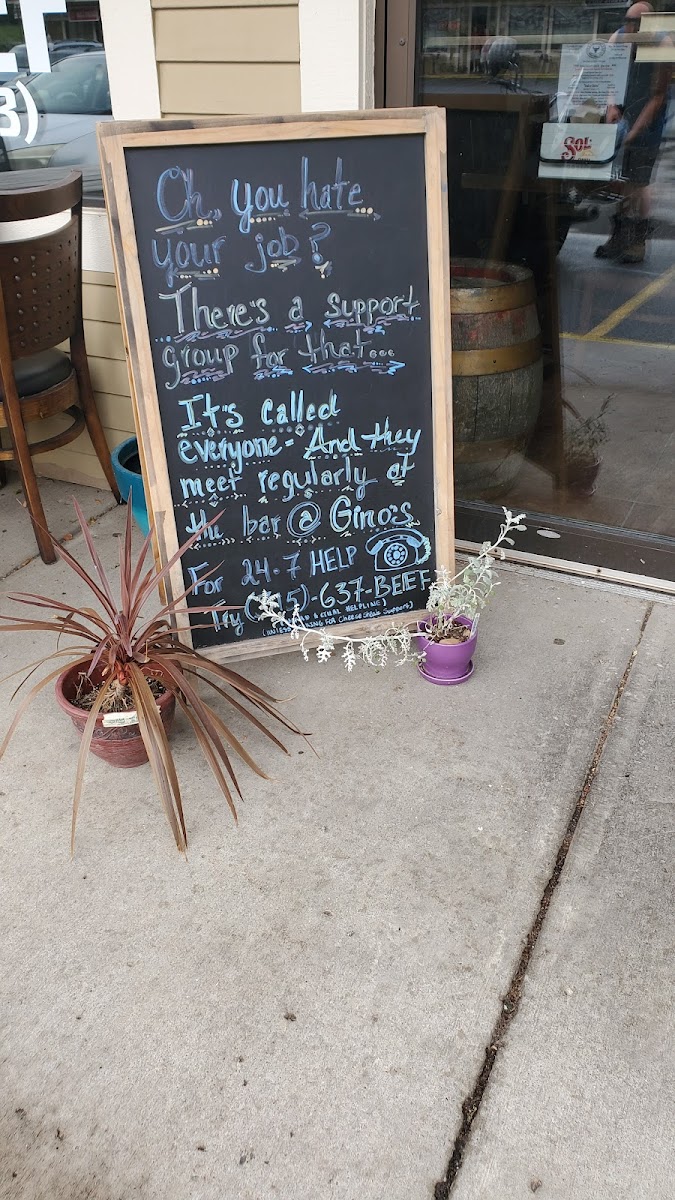 Oh, you hate
your job?
There's a support
group for that...
It's called
everyone - And they
meet regularly at
the bar @ Gino's
For 24-7 HELP
Try 5)-637-BEEF
& ETHAL HELPLINE)
FOR Cheese Steak Support)
Sol
3)